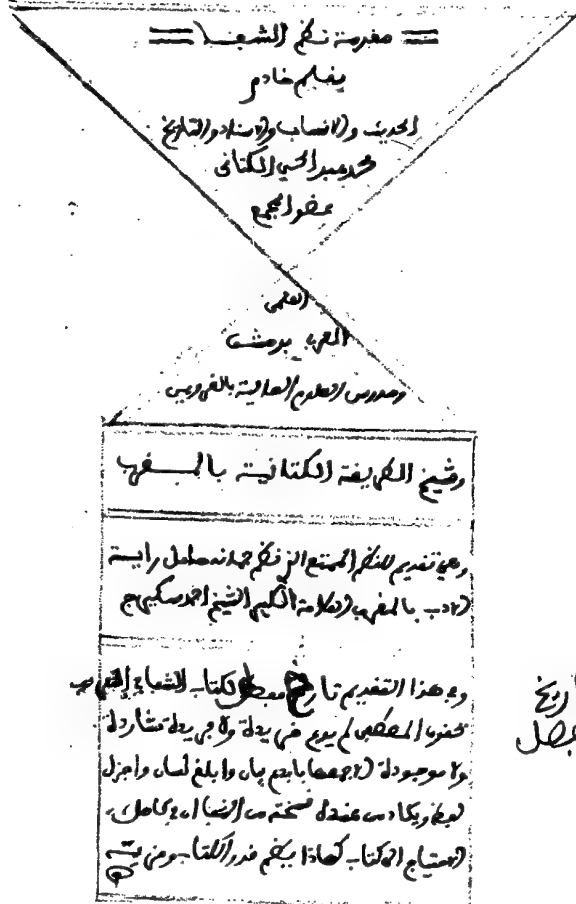 مقدمة نظم الشفا
بقلم خادم
الحديث والانساب والاسناد والتاريخ
محمد عبد الحي الكتاني
عضو المجمع
العلمي
العربي بدمشق
ومدرس العلوم العالية بالقرويين
وشيخ الطريقة الكتانية بالمغرب
وهي تقديم للنظم الممتع الذي نظم حامل راية
الادب بالمغرب العلامة الكبير الشيخ احمد سكيرج
وفي هذا التقديم تاريخ مفصل لكتاب الشفا في التعريف
بحقوق المصطفى لم يدع فريدة ولا خريدة شاردة
ولا موجودة الا جمعها بابدع بيان وابلغ لسان واجزل
لفظ ويكاد من عنده نسخة من الشفا ان يكون كامل
الاحتياج الى كتاب كهذا يبين قدر الكتاب ومزيته
تاريخ
مفصل